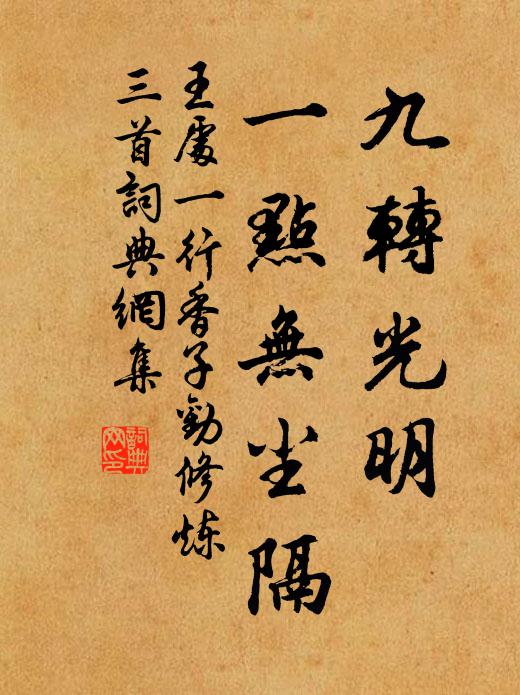 九轉光明
一點無尘隔
王處一行香子勸修炼
三首詞典網集
詞典
网印